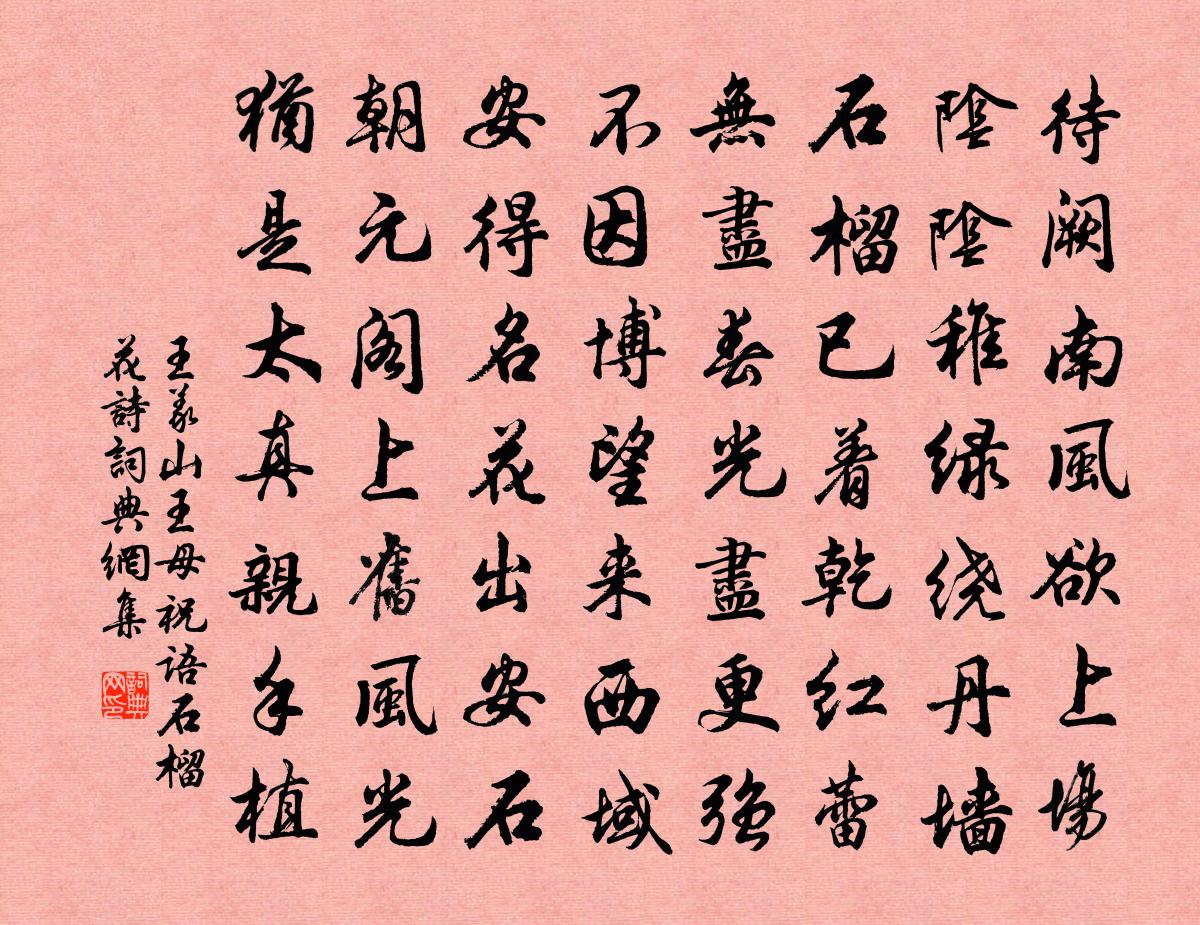 待阙南風欲上場
陰陰稚绿绕丹墙
石榴已着乾红蕾
無盡春光盡更强
不因博望来西域
安得名花出安石
朝元阁上舊風光
猶是太真親手植
王義山王母祝语石榴
花詩詞典網集
詞典网印